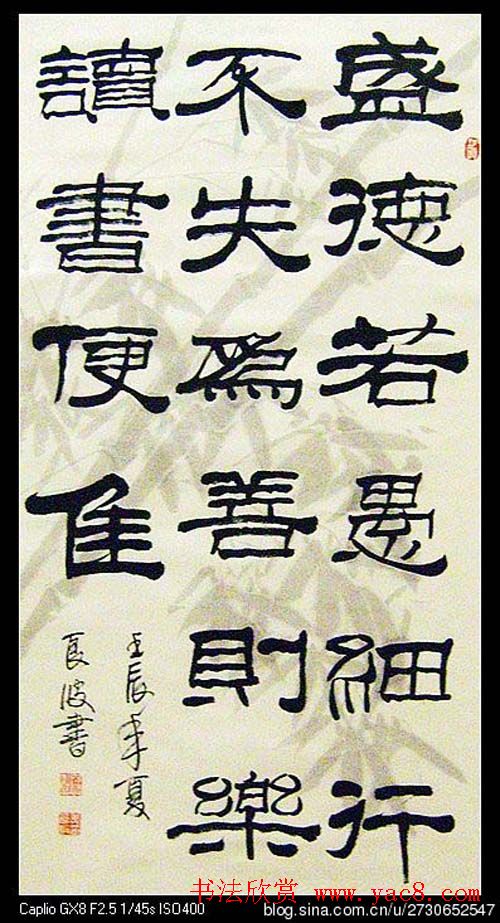 盛德若愚細行
不失為善則樂
讀書便佳
壬辰年夏
良波書
书法欣赏 www.yac8.com
Caplio GX8 F2.5 1/45s ISO400
blog.sina.com.cn/u/2730652547